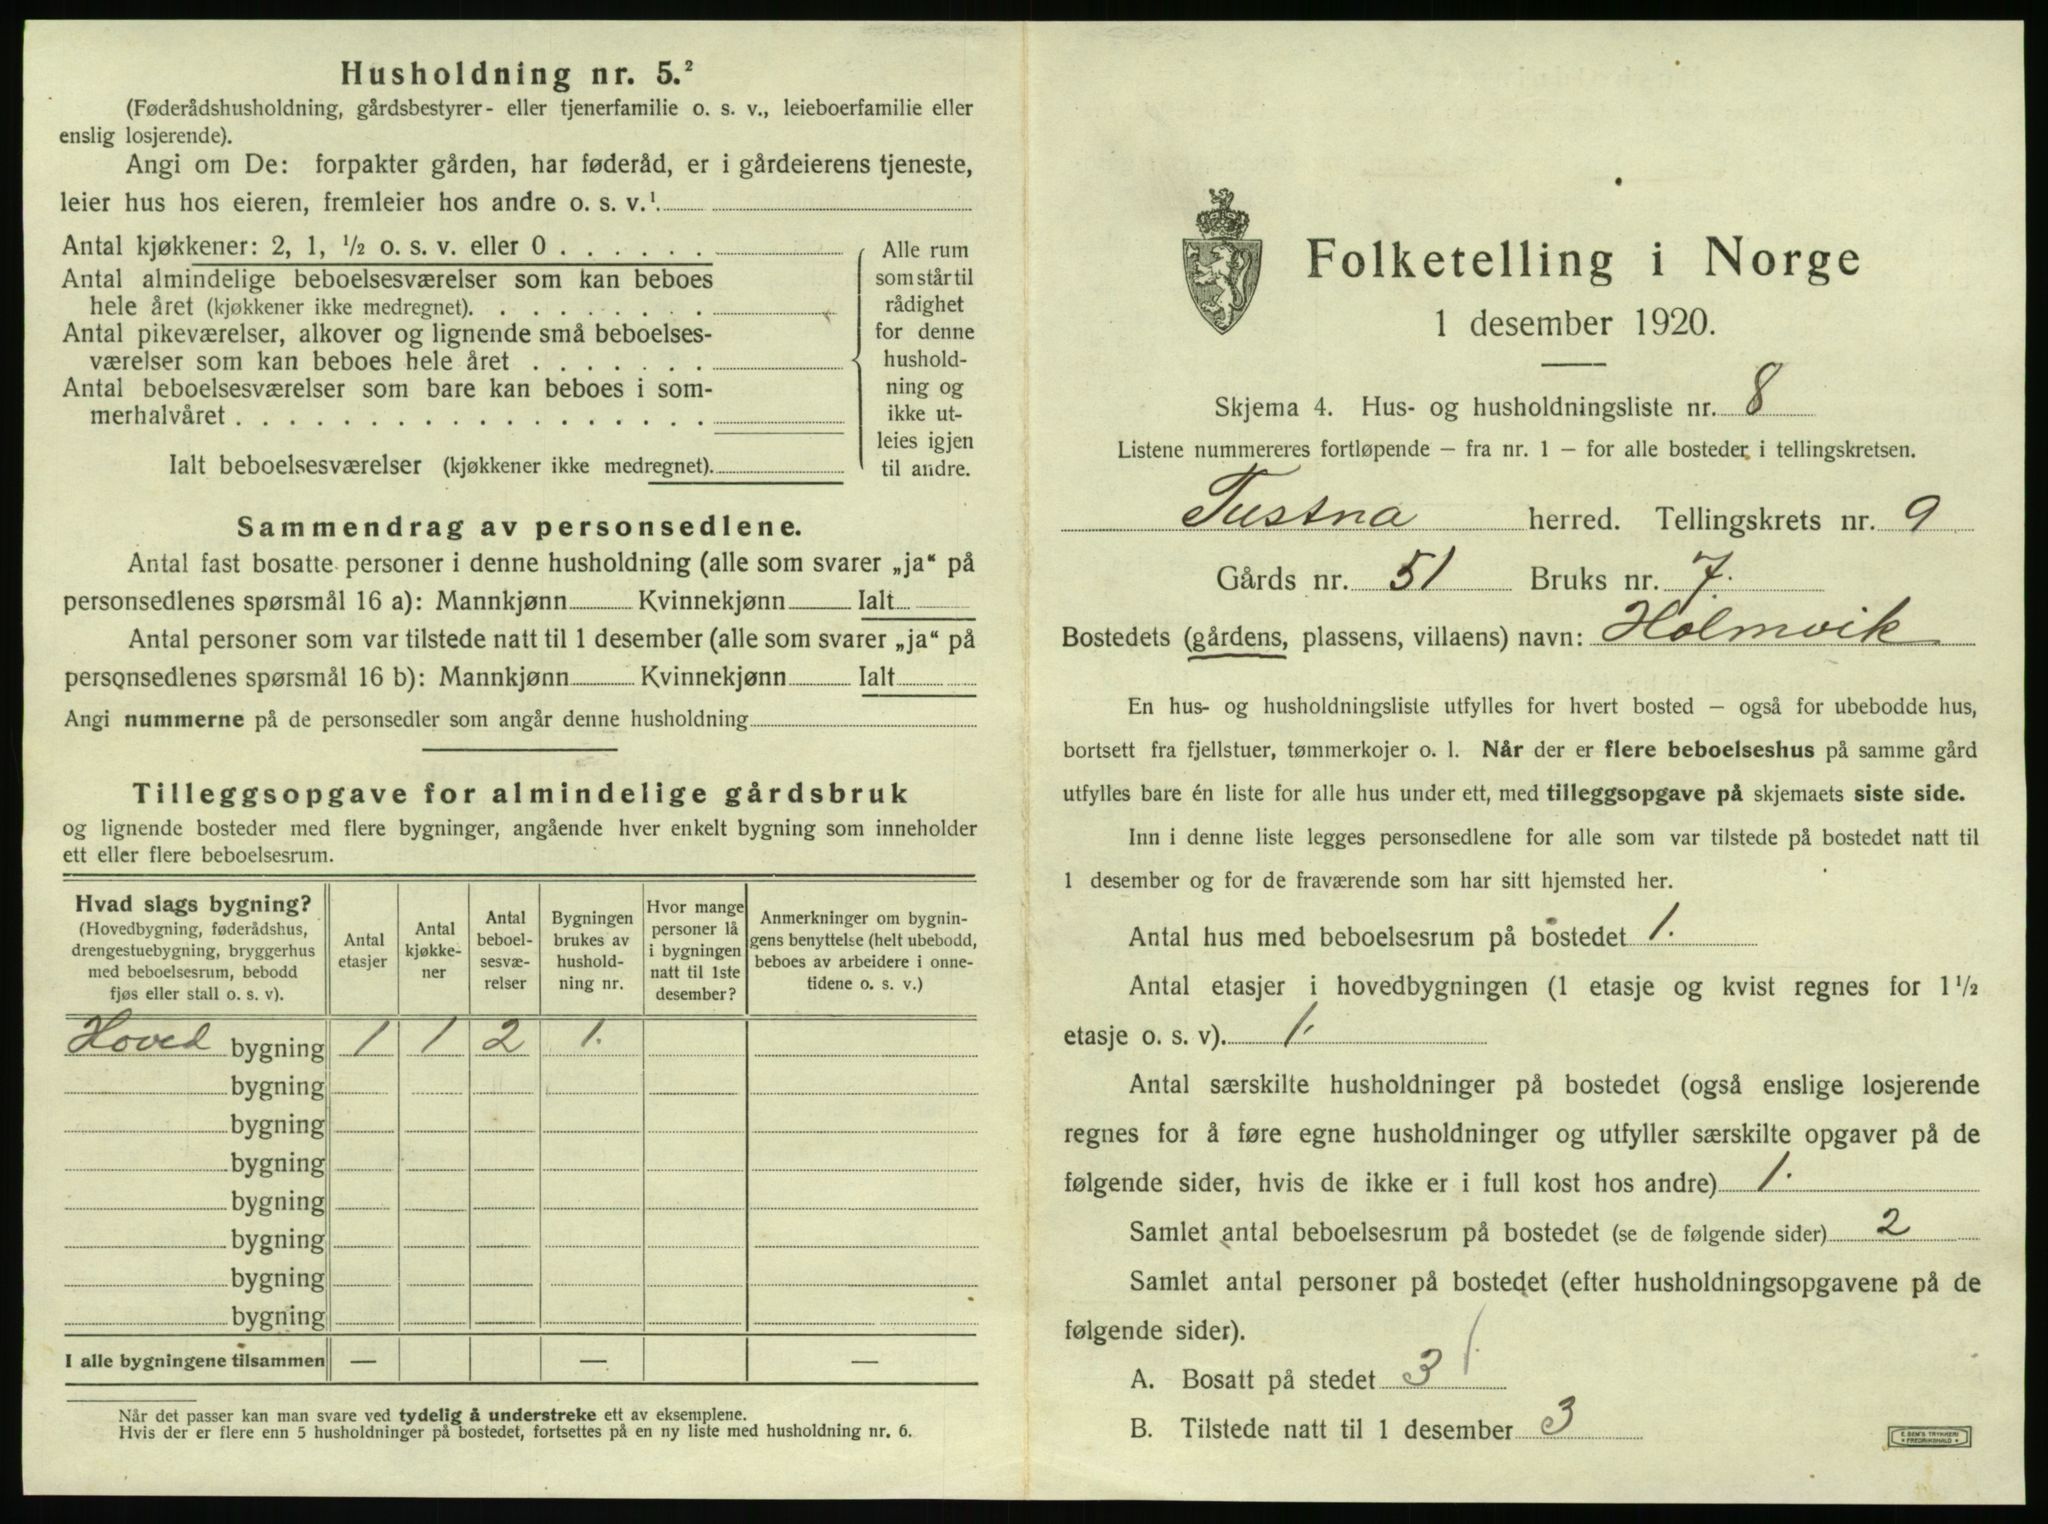 Husholdning nr. 5.²
(Føderådshusholdning, gårdsbestyrer- eller tjenerfamilie o. s. v., leieboerfamilie eller
enslig losjerende).
Angi om De: forpakter gården, har føderåd, er i gårdeierens tjeneste,
leier hus hos eieren, fremleier hos andre o. s. v.¹
Antal kjøkkener: 2, 1, ½ o. s. v. eller 0 . . . . . .
Antal almindelige beboelsesværelser som kan beboes
hele året (kjøkkener ikke medregnet). . . . . . . . .
Antal pikeværelser, alkover og lignende små beboelses-
værelser som kan beboes hele året . . . . . . .
Antal beboelsesværelser som bare kan beboes i som-
merhalvåret . . . . . . . . . . . . . . . . . .
Ialt beboelsesværelser (kjøkkener ikke medregnet).
Alle rum
som står til
rådighet
for denne
hushold-
ning og
ikke ut-
leies igjen
til andre.
Sammendrag av personsedlene.
Antal fast bosatte personer i denne husholdning (alle som svarer „ja“ på
personsedlenes spørsmål 16 a): Mannkjønn Kvinnekjønn Ialt
Antal personer som var tilstede natt til 1 desember (alle som svarer „ja“ på
personsedlenes spørsmål 16 b): Mannkjønn Kvinnekjønn Ialt
Angi nummerne på de personsedler som angår denne husholdning
Tilleggsopgave for almindelige gårdsbruk
og lignende bosteder med flere bygninger, angående hver enkelt bygning som inneholder
ett eller flere beboelsesrum.
Hvad slags bygning?
(Hovedbygning, føderådshus,
drengestuebygning, bryggerhus
med beboelsesrum, bebodd
fjøs eller stall o. s. v).
Antal
etasjer
Antal
kjøkke-
ner
Antal
beboel-
sesvæ-
relser
Bygningen
brukes av
hushold-
ning nr.
Hvor mange
personer lå
i bygningen
natt til 1ste
desember?
Anmerkninger om bygnin-
gens benyttelse (helt ubebodd,
beboes av arbeidere i onne-
tidene o. s. v.)
Hoved bygning 1 1 2 1.
bygning
bygning
bygning
bygning
bygning
bygning
bygning
I alle bygningene tilsammen — — —
Når det passer kan man svare ved tydelig å understreke ett av eksemplene.
Hvis der er flere enn 5 husholdninger på bostedet, fortsettes på en ny liste med husholdning nr. 6.
Folketelling i Norge
1 desember 1920.
Skjema 4. Hus- og husholdningsliste nr. 8
Listene nummereres fortløpende – fra nr. 1 – for alle bosteder i tellingskretsen.
Tustna herred. Tellingskrets nr. 9
Gårds nr. 51 Bruks nr. 7.
Bostedets (gårdens, plassens, villaens) navn: Holmvik
En hus- og husholdningsliste utfylles for hvert bosted – også for ubebodde hus,
bortsett fra fjellstuer, tømmerkojer o. l. Når der er flere beboelseshus på samme gård
utfylles bare én liste for alle hus under ett, med tilleggsopgave på skjemaets siste side.
Inn i denne liste legges personsedlene for alle som var tilstede på bostedet natt til
1 desember og for de fraværende som har sitt hjemsted her.
Antal hus med beboelsesrum på bostedet 1.
Antal etasjer i hovedbygningen (1 etasje og kvist regnes for 1½
etasje o. s. v). 1.
Antal særskilte husholdninger på bostedet (også enslige losjerende
regnes for å føre egne husholdninger og utfyller særskilte opgaver på de
følgende sider, hvis de ikke er i full kost hos andre) 1.
Samlet antal beboelsesrum på bostedet (se de følgende sider) 2
Samlet antal personer på bostedet (efter husholdningsopgavene på de
følgende sider).
A. Bosatt på stedet 3
B. Tilstede natt til 1 desember 3
E. SEM'S TRYKKERI
FREDRIKSHALD